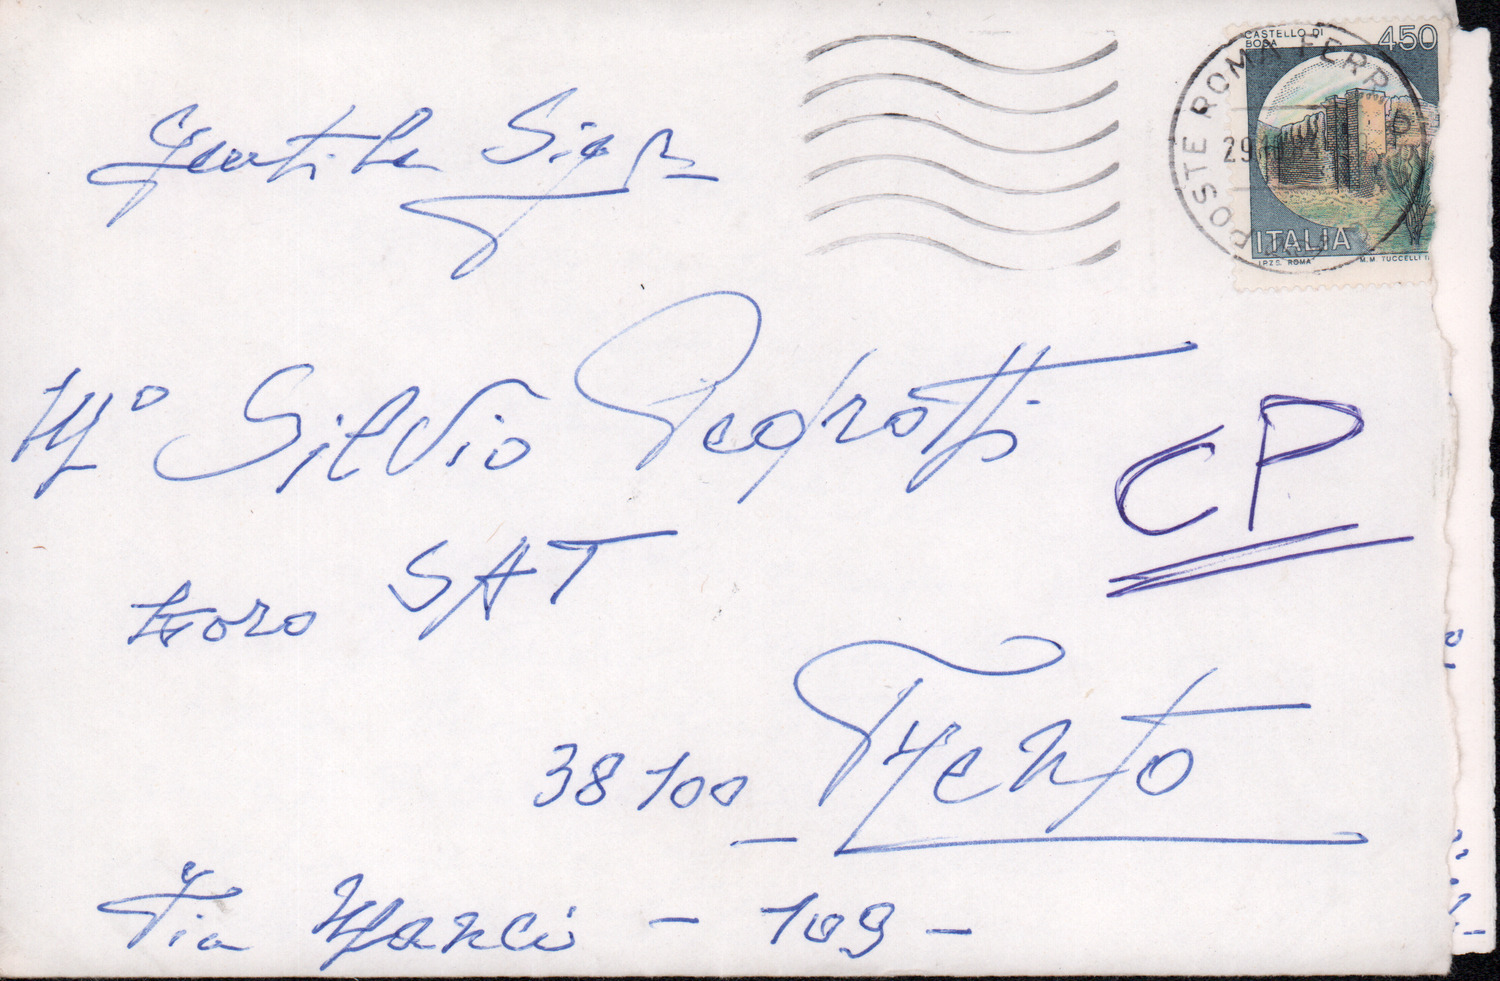 CASTELLO DI
BOSA
450
POSTE ROMA FERR
29
ITALIA
I.P.Z.S. ROMA
M.M. TUCCELLI
Gentile Sig
M° Silvio Pedrotti
CP
Coro SAT
38100 Trento
Via Manci - 109 -